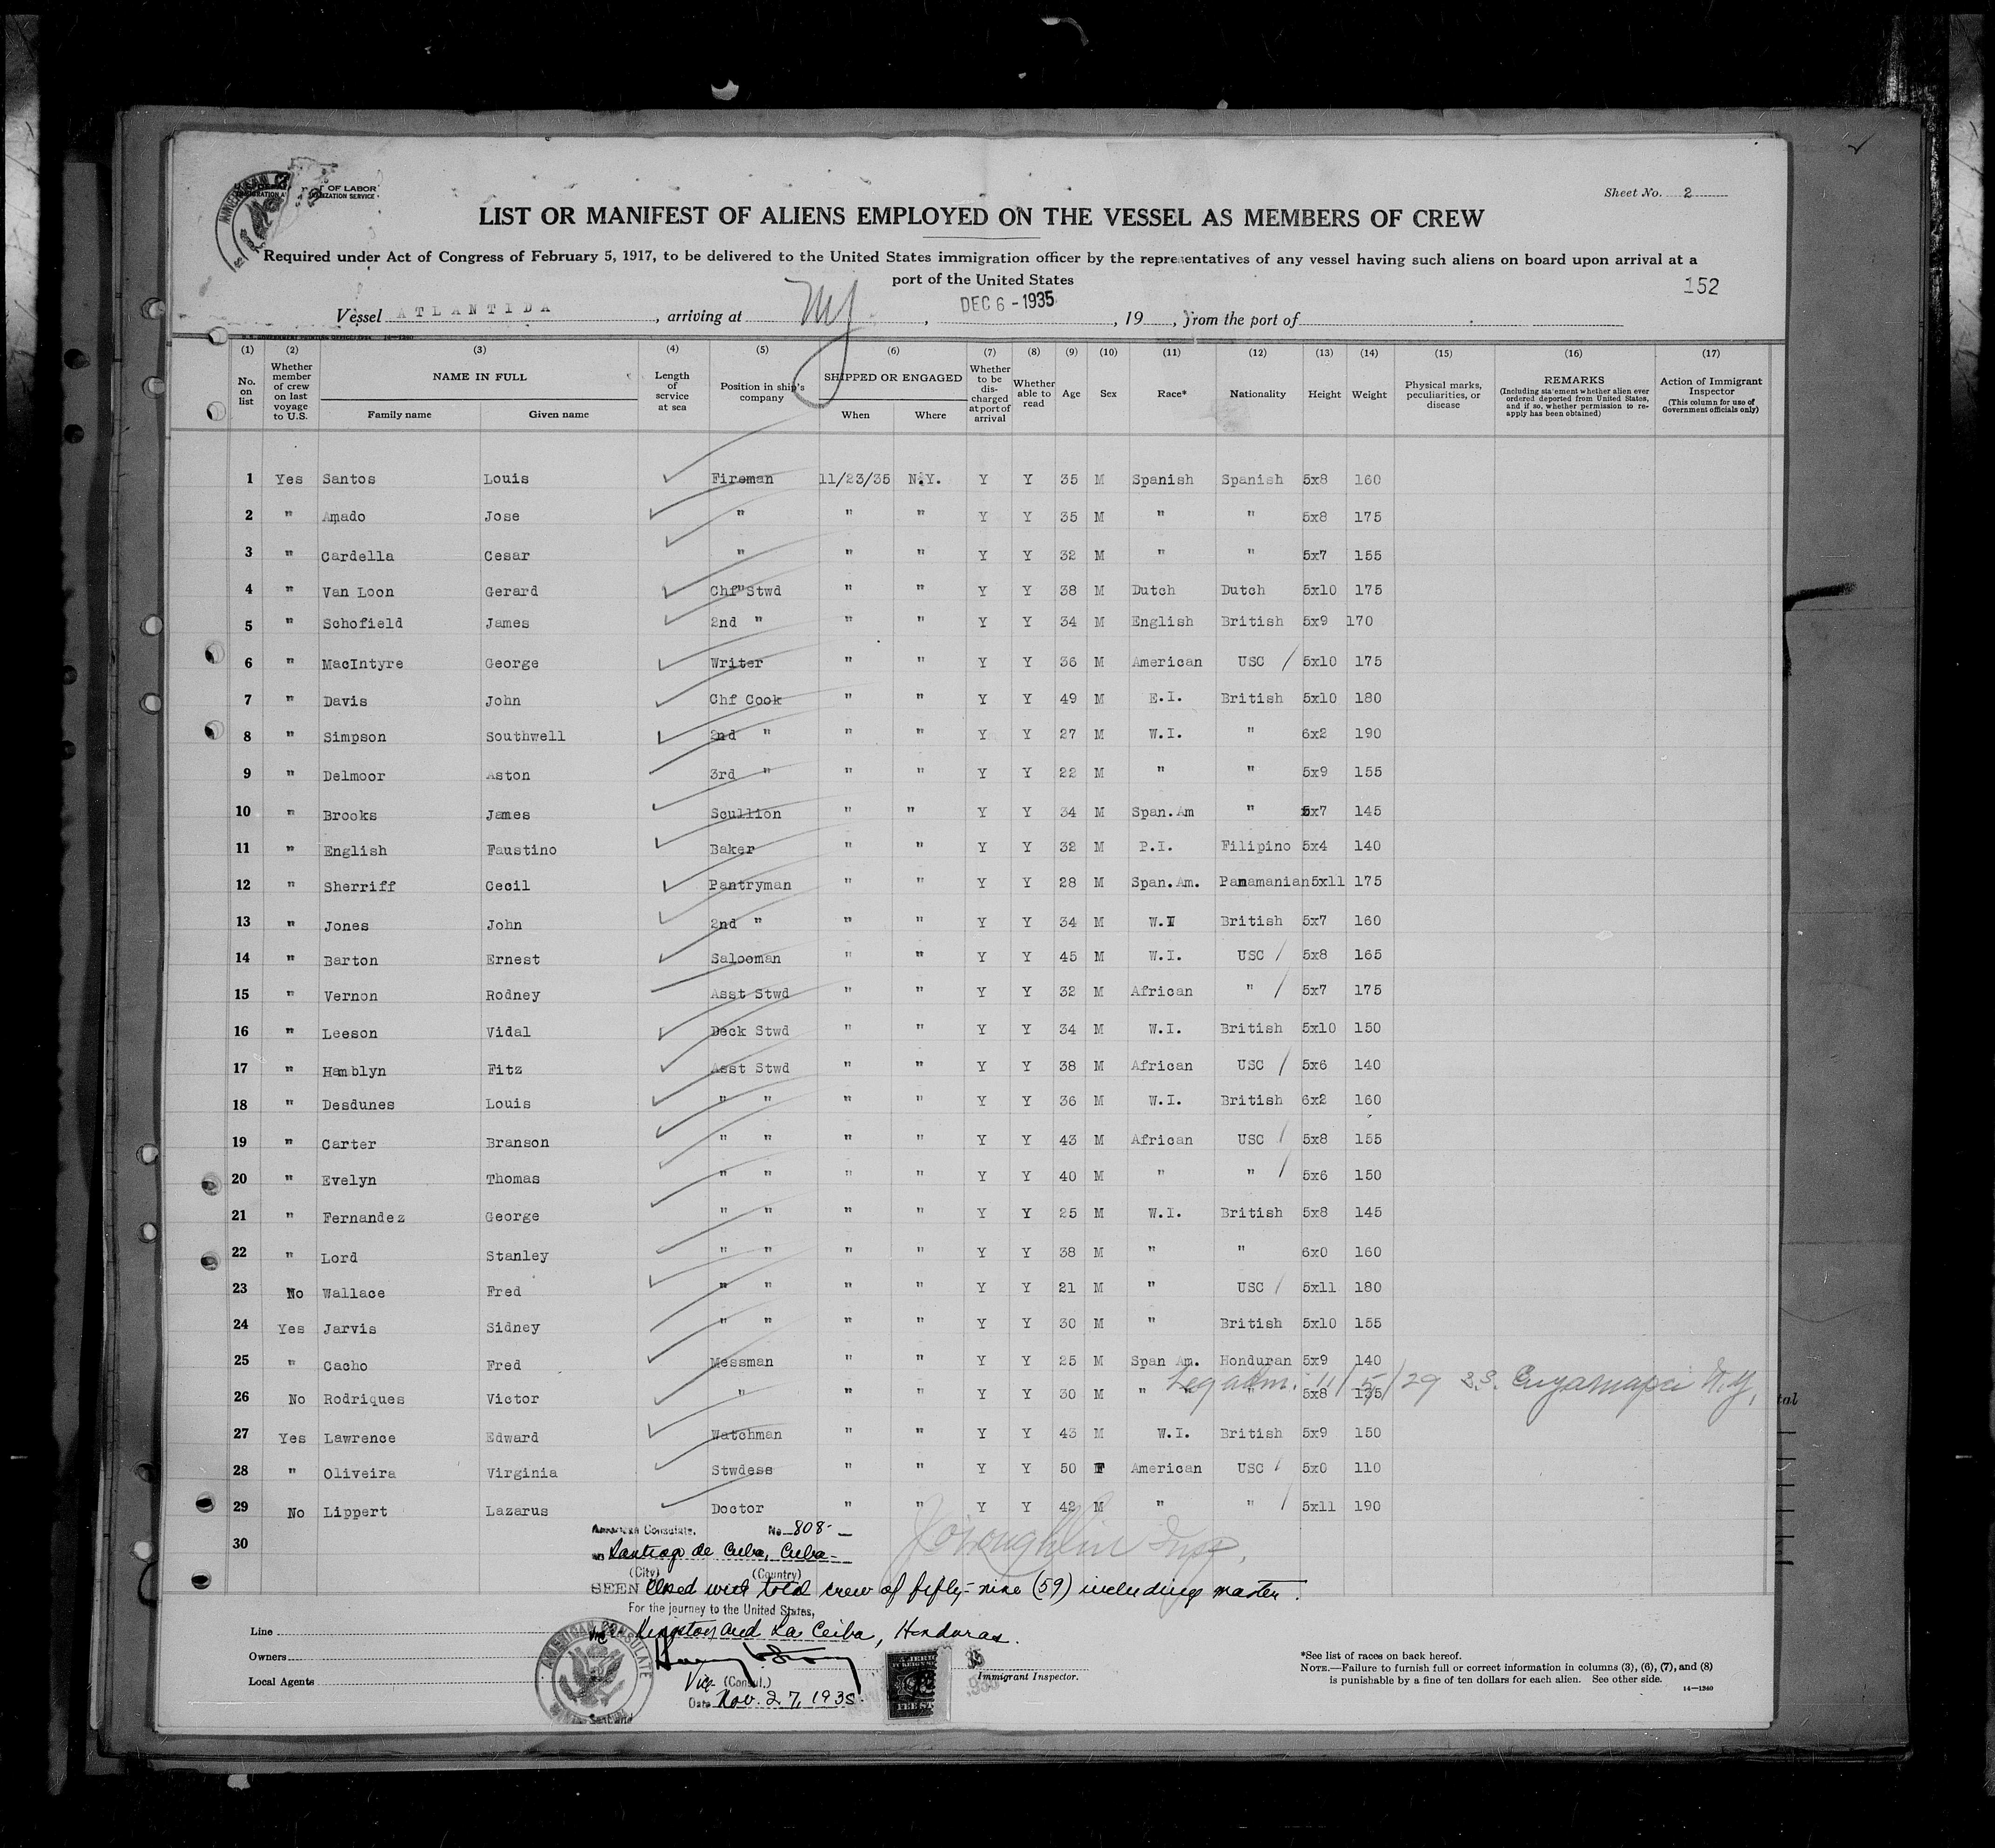 OF LABOR
Sheet No. 2
LIST OR MANIFEST OF ALIENS EMPLOYED ON THE VESSEL AS MEMBERS OF CREW
Required under Act of Congress of February 5, 1917, to be delivered to the United States immigration officer by the representatives of any vessel having such aliens on board upon arrival at a
port of the United States
152
Vessel ATLANTIDA, arriving at NY, DEC 6 - 1935, 19, from the port of
(1) (2) (3) (4) (5) (6) (7) (8) (9) (10) (11) (12) (13) (14) (15) (16) (17)
No. on list
Whether member of crew on last voyage to U.S.
NAME IN FULL
Family name Given name
Length of service at sea
Position in ship's company
SHIPPED OR ENGAGED
When Where
Whether to be discharged at port of arrival
Whether able to read
Age Sex Race* Nationality Height Weight
Physical marks, peculiarities, or disease
REMARKS
(Including statement whether alien ever ordered deported from United States, and if so, whether permission to re-apply has been obtained)
Action of Immigrant Inspector
(This column for use of Government officials only)
1 Yes Santos Louis Fireman 11/23/35 N.Y. Y Y 35 M Spanish Spanish 5x8 160
2 " Amado Jose " " " Y Y 35 M " " 5x8 175
3 " Cardella Cesar " " " Y Y 32 M " " 5x7 155
4 " Van Loon Gerard Chf Stwd " " Y Y 38 M Dutch Dutch 5x10 175
5 " Schofield James 2nd " " " Y Y 34 M English British 5x9 170
6 " MacIntyre George Writer " " Y Y 36 M American USC / 5x10 175
7 " Davis John Chf Cook " " Y Y 49 M E.I. British 5x10 180
8 " Simpson Southwell 2nd " " " Y Y 27 M W.I. " 6x2 190
9 " Delmoor Aston 3rd " " " Y Y 22 M " " 5x9 155
10 " Brooks James Scullion " " Y Y 34 M Span.Am " 5x7 145
11 " English Faustino Baker " " Y Y 32 M P.I. Filipino 5x4 140
12 " Sherriff Cecil Pantryman " " Y Y 28 M Span.Am. Panamanian 5x11 175
13 " Jones John 2nd " " " Y Y 34 M W.I British 5x7 160
14 " Barton Ernest Salooman " " Y Y 45 M W.I. USC / 5x8 165
15 " Vernon Rodney Asst Stwd " " Y Y 32 M African " / 5x7 175
16 " Leeson Vidal Deck Stwd " " Y Y 34 M W.I. British 5x10 150
17 " Hamblyn Fitz Asst Stwd " " Y Y 38 M African USC / 5x6 140
18 " Desdunes Louis " " " " Y Y 36 M W.I. British 6x2 160
19 " Carter Branson " " " " Y Y 43 M African USC / 5x8 155
20 " Evelyn Thomas " " " " Y Y 40 M " " / 5x6 150
21 " Fernandez George " " " " Y Y 25 M W.I. British 5x8 145
22 " Lord Stanley " " " " Y Y 38 M " " 6x0 160
23 No Wallace Fred " " " " Y Y 21 M " USC / 5x11 180
24 Yes Jarvis Sidney " " " " Y Y 30 M " British 5x10 155
25 " Cacho Fred Messman " " Y Y 25 M Span Am. Honduran 5x9 140
Leg adm. 11/5/29 SS. N.Y.
26 No Rodriques Victor " " " Y Y 30 M " " 5x8 135
27 Yes Lawrence Edward Watchman " " Y Y 43 M W.I. British 5x9 150
28 " Oliveira Virginia Stwdess " " Y Y 50 F American USC / 5x0 110
29 No Lippert Lazarus Doctor " " Y Y 42 M " " / 5x11 190
30
American Consulate. No. 808
Santiago de Cuba, Cuba
(City) (Country)
SEEN Closed with total crew of fifty-nine (59) including master.
For the journey to the United States,
via Kingston and La Ceiba, Honduras.
Vice (Consul.)
Date Nov. 27, 1935
AMERICAN CONSULATE
Line
Owners
Local Agents
Immigrant Inspector.
*See list of races on back hereof.
NOTE.—Failure to furnish full or correct information in columns (3), (6), (7), and (8)
is punishable by a fine of ten dollars for each alien. See other side.
14—1240